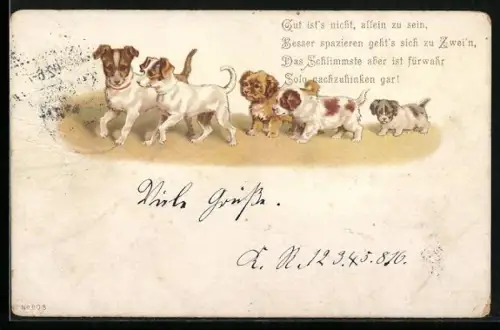 Gut ist's nicht, allein zu sein,
Besser spazieren geht's sich zu Zwei'n,
Das Schlimmste aber ist fürwahr
Solo nachzuhinken gar!
Viele Grüße.
L. N. 1 2 3.4.5. 8 10.
No 603